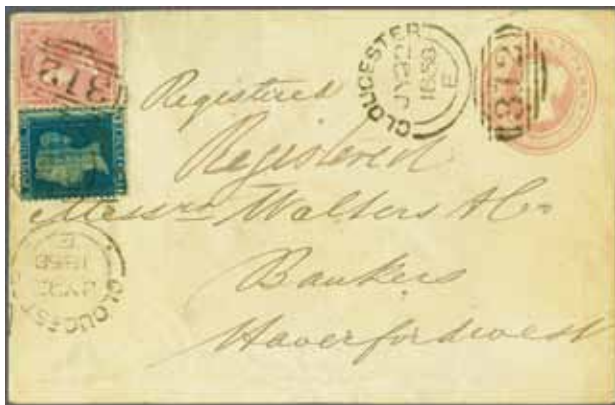 312
GLOUCESTER
JY 22
1858
E
312
Registered
Registered
Messrs Walters & Co
Bankers
Haverfordwest
GLOUCEST
JY 22
1858
E